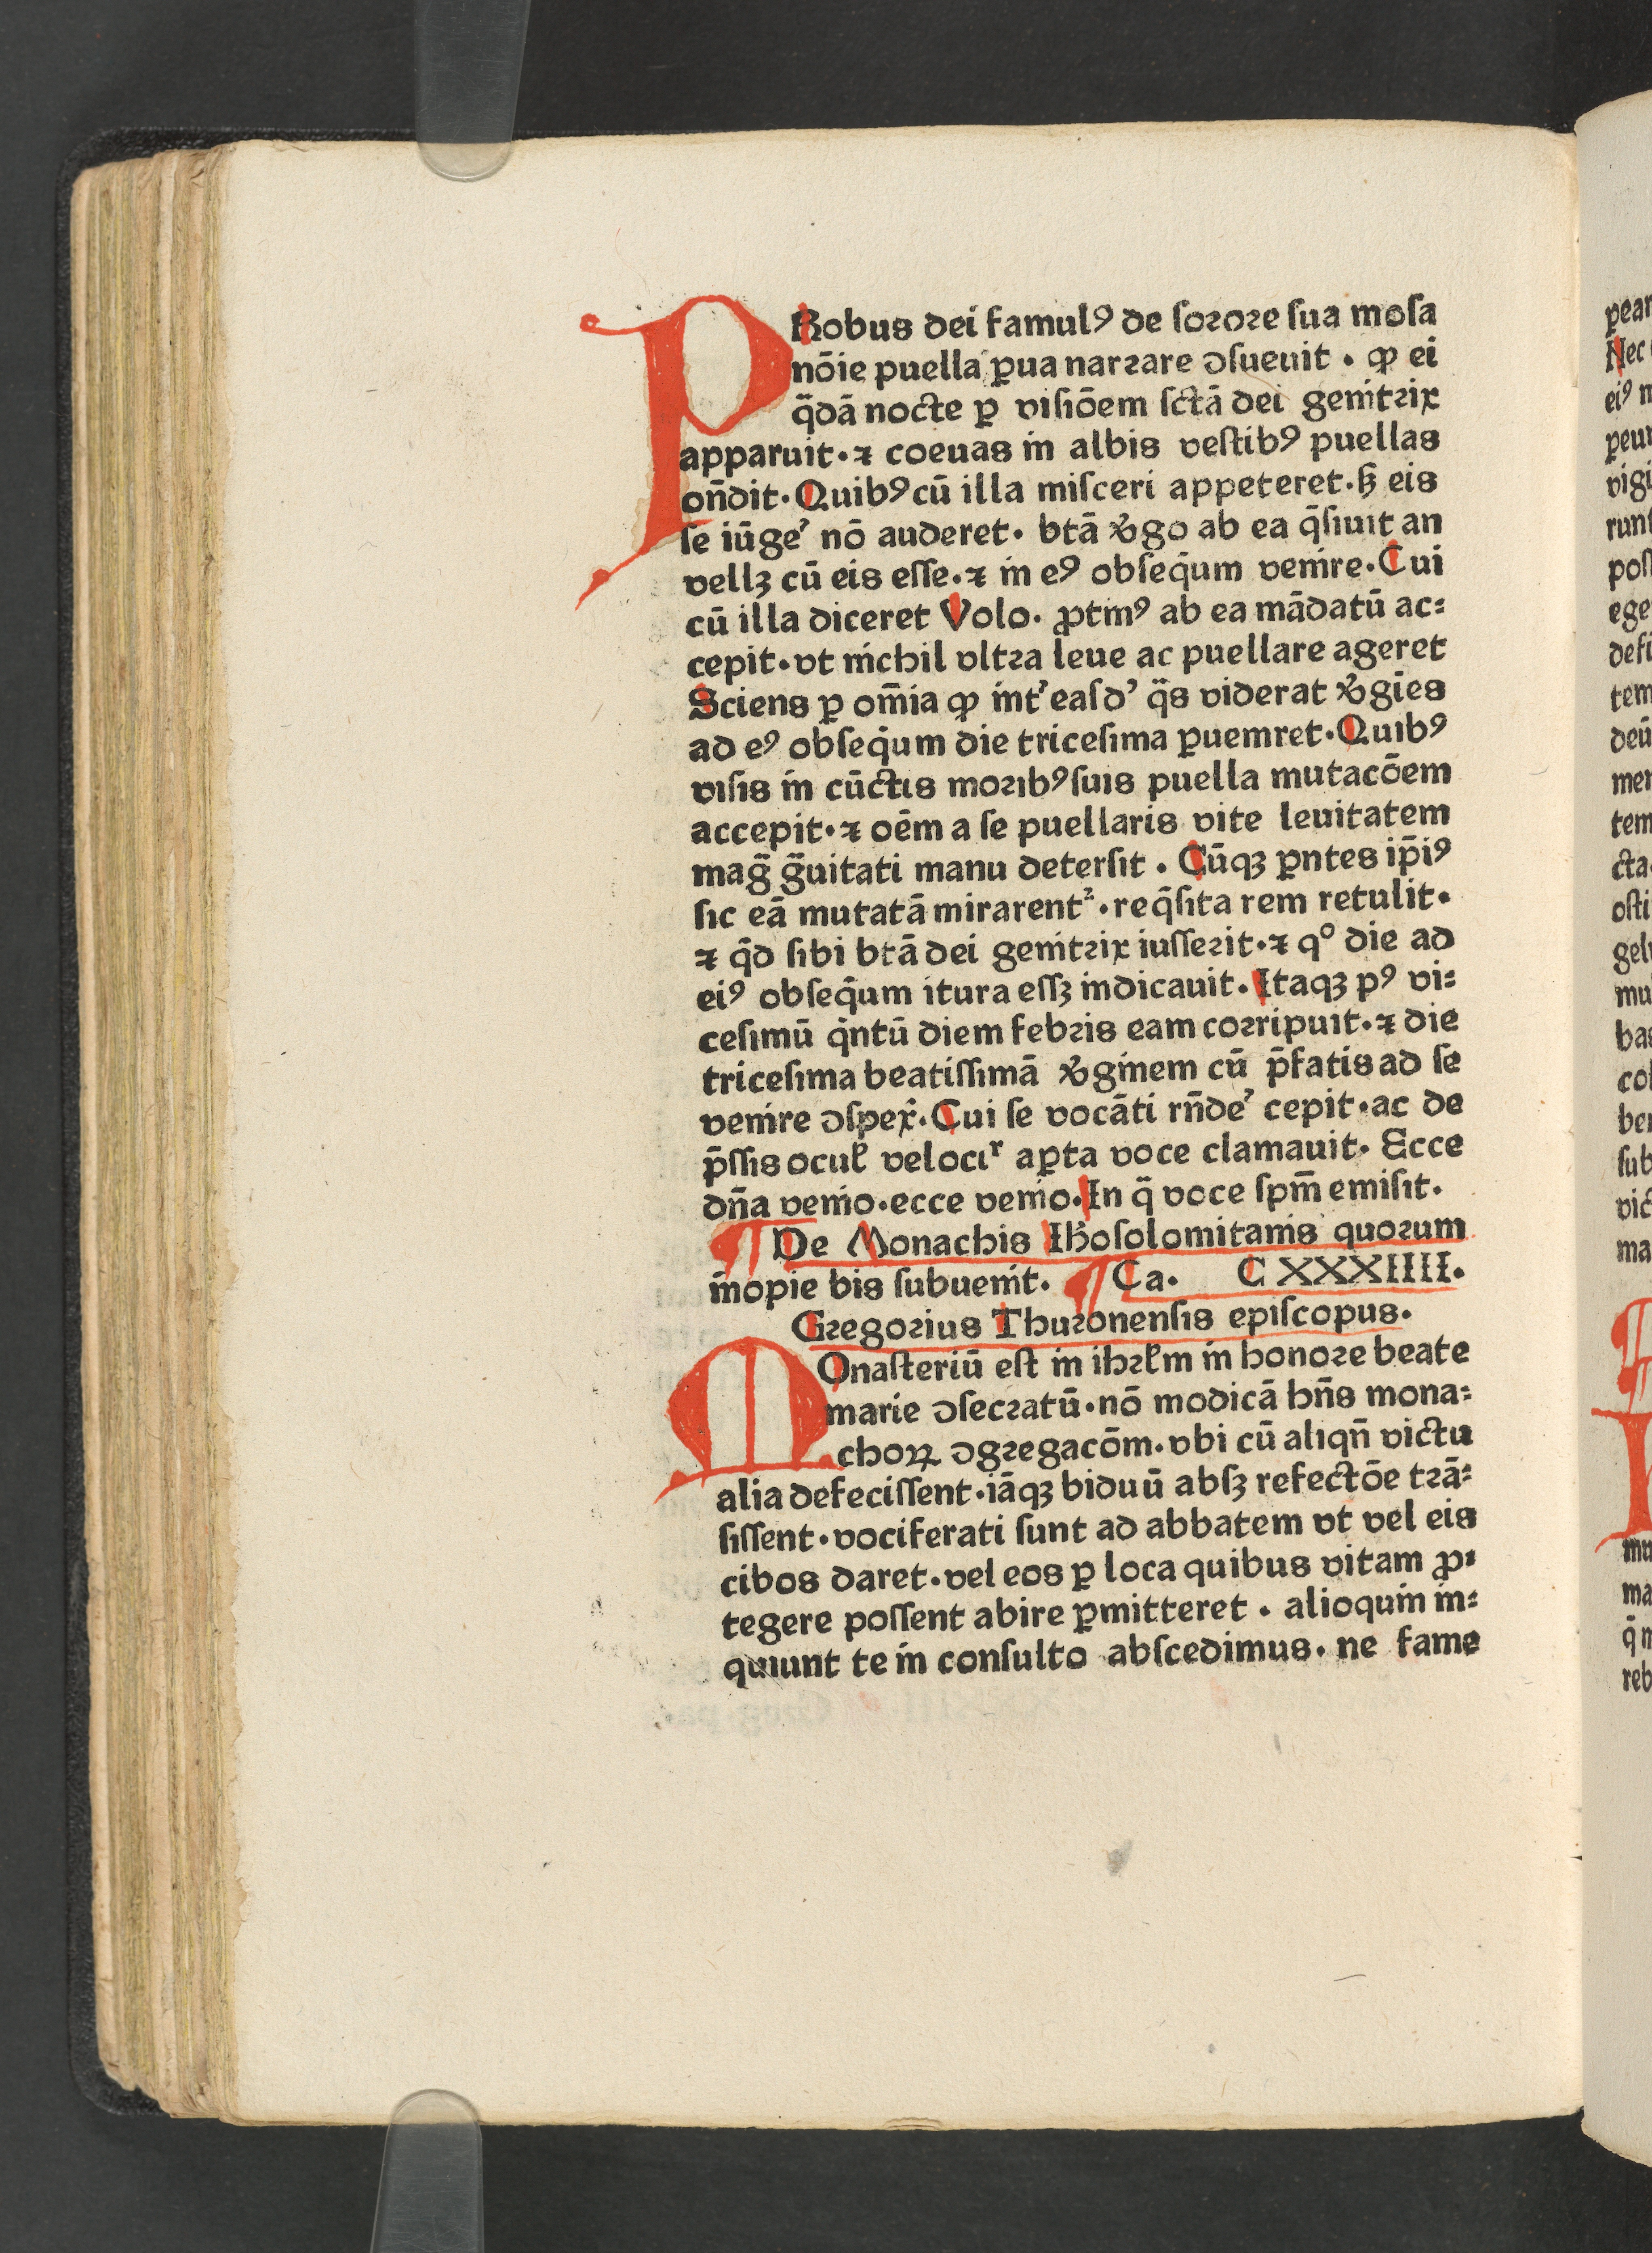 PRobus dei famulꝰ de ſoꝛoꝛe ſua moſa
nōie puella ꝑua narꝛare ↄſueuit · ꝙ ei
q̄dā nocte ꝑ viſiōem ſctā dei genitꝛix
apparuit · ⁊ coeuas in albis veſtibꝰ puellas
on̄dit · Quibꝰ cū illa miſceri appeteret · ꝫ eis
ſe iūge᾽ nō auderet · btā v̓go ab ea q̄ſiuit an
vellꝫ cū eis eſſe · ⁊ in eꝰ obſeq̄um venire · Cui
cū illa diceret Volo · ꝓtinꝰ ab ea mādatū ac⸗
cepit · vt nichil vltꝛa leue ac puellare ageret
Sciens ꝑ om̄ia ꝙ int᾽ eaſd᾽ q̄s viderat v̓gīes
ad eꝰ obſeq̄um die triceſima ꝑueniret · Quibꝰ
viſis in cūctis moꝛibꝰ ſuis puella mutacōem
accepit · ⁊ oēm a ſe puellaris vite leuitatem
maḡ ḡuitati manu deterſit · Cūqꝫ ꝑntes ip̄iꝰ
ſic eā mutatā mirarentᷣ · req̄ſita rem retulit ·
⁊ q̄d ſibi btā dei genitꝛix iuſſeꝛit · ⁊ qº die ad
eiꝰ obſeq̄um itura eſſꝫ indicauit · Itaqꝫ pꝰ vi⸗
ceſimū q̄ntū diem febꝛis eam coꝛripuit · ⁊ die
triceſima beatiſſimā v̓ginem cū p̄fatis ad ſe
venire ↄſpex̄ · Cui ſe vocāti rn̄de᾽ cepit · ac de
p̄ſſis ocuł velociʳ aꝑta voce clamauit · Ecce
dn̄a venio · ecce venio · In q̄ voce ſpm̄ emiſit ·
¶ De Monachis Ihoſolomitanis quoꝛum
īnopie bis ſubuenit · ¶ Ca · C XXXIIII ·
Gꝛegoꝛius Thuꝛonenſis epiſcopus ·
MOnaſteriū eſt in ihꝛłm in honoꝛe beate
marie ↄſecꝛatū · nō modicā hn̄s mona⸗
choꝝ ↄgꝛegacōm · vbi cū aliqn̄ victu
alia defeciſſent · iāqꝫ biduū abſꝫ refectōe tꝛā⸗
ſiſſent · vociferati ſunt ad abbatem vt vel eis
cibos daret · vel eos ꝑ loca quibus vitam ꝓ⸗
tegere poſſent abire ꝑmitteret · alioquin in⸗
quiunt te in conſulto abſcedimus · ne fame